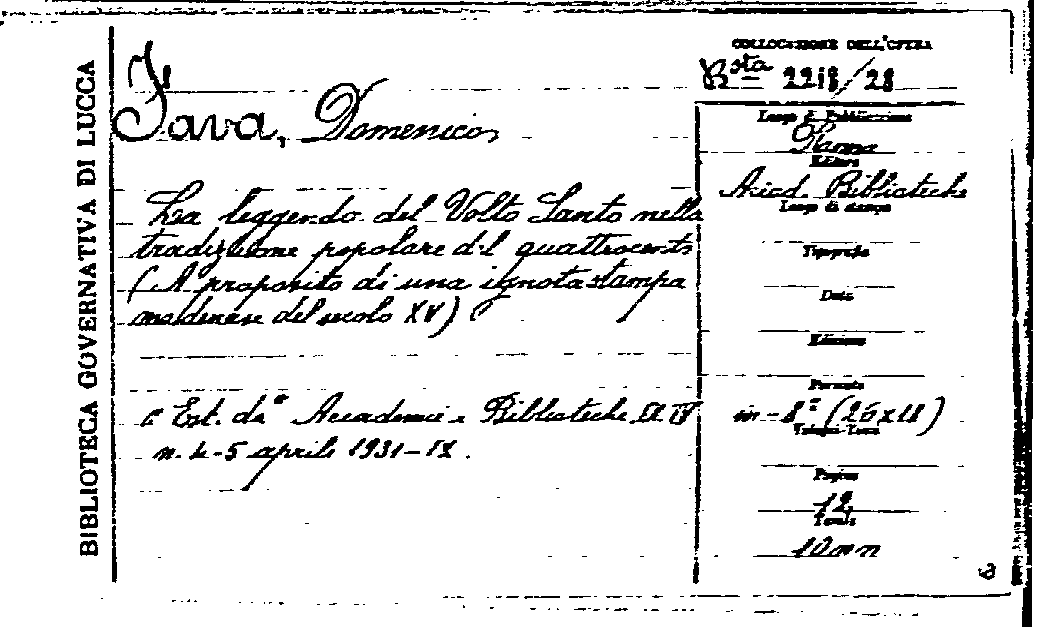 BIBLIOTECA GOVERNATIVA DI LUCCA
Fava, Domenico
La leggenda del Volto Santo nella
tradizione popolare del quattrocento
(A proposito di una ignota stampa
modenese del secolo XV)
Est. da "Accademie e Biblioteche
n. 4-5 aprile 1931-IX.
COLLOCAZIONE DELL'OPERA
Bsta 2218/28
Luogo di Pubblicazione
Roma
Editore
Accad. Biblioteche
Luogo di stampa
Tipografia
Data
Edizione
Formato
in-8° (26x18)
Pagine
12